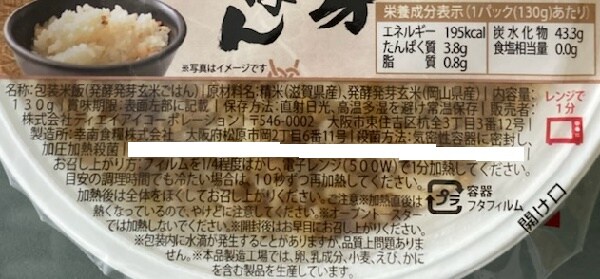 ごはん
※写真はイメージです
栄養成分表示(1パック(130g)あたり)
エネルギー 195kcal 炭水化物 43.3g
たんぱく質 3.8g 食塩相当量 0.0g
脂質 0.8g
名称:包装米飯(発酵発芽玄米ごはん)|原材料名:精米(滋賀県産)、発酵発芽玄米(岡山県産)|内容量:
130g|賞味期限:表面左部に記載|保存方法:直射日光、高温多湿を避け常温保存|販売者:
株式会社ティエイアイコーポレーション|〒546-0002 大阪市東住吉区杭全3丁目3番12号|
製造所:幸南食糧株式会社 大阪府松原市岡2丁目6番11号|殺菌方法:気密性容器に密封し、
加圧加熱殺菌|
お召し上がり方:フィルムを1/4程度はがし、電子レンジ(500W)で1分加熱してください。
目安の調理時間でも冷たい場合は、10秒ずつ再加熱してください。
加熱後は全体をほぐしてお召し上がりください。ご注意※加熱直後は
熱くなっているので、やけどに注意してください。※オーブントースター
では加熱しないでください。※開封後はお早目にお召し上がりください。
※包装内に水滴が発生することがありますが、品質上問題ありま
せん。※本品製造工場では、卵、乳成分、小麦、えび、かに
を含む製品を生産しています。
レンジで
1分
プラ
容器
フタフィルム
開け口